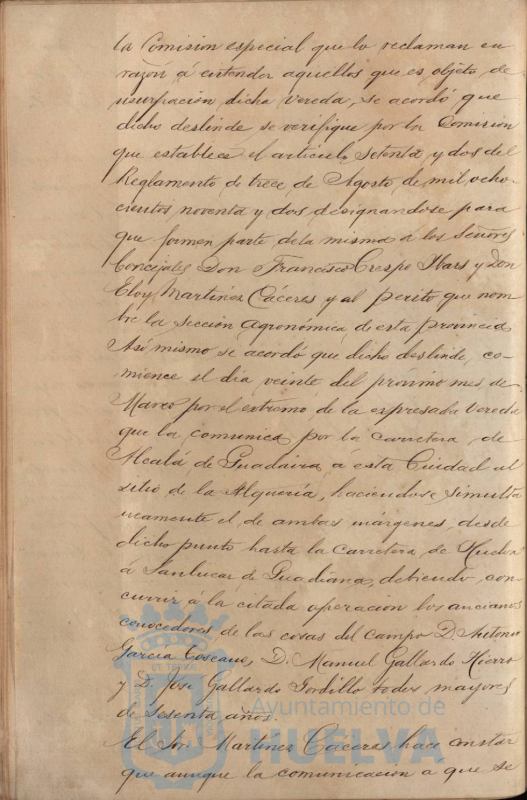 la Comision especial que lo reclaman en
razon á entender aquellos que es objeto de
usurpación dicha vereda, se acordó que
dicho deslinde se verifique por la Comision
que establece el articulo setenta y dos del
Reglamento de trece de Agosto de mil ocho-
cientos noventa y dos designandose para
que formen parte de la misma á los Señores
Concejales Don Francisco Crespo Ibars y Don
Eloy Martinez Cáceres y al perito que nom
bre la sección agronómica de esta provincia
Asi mismo se acordó que dicho deslinde, co-
mience el dia veinte del próximo mes de
Marzo por el extremo de la expresada vereda
que la comunica por la carretera de
Alcalá de Guadaira á esta Ciudad al
sitio de la Alquería, haciendose simulta
neamente el de ambas márgenes, desde
dicho punto hasta la carretera de Huelva
á Sanlucar de Guadiana, debiendo con-
currir á la citada operacion los ancianos
conocedores de las cosas del campo D. Antonio
Garcia Toscano, D. Manuel Gallardo Hierro
y D. José Gallardo Gordillo todos mayores
de sesenta años.
El Sor. Martinez Caceres hace constar
que aunque la comunicacion a que se
Ayuntamiento de
HUELVA